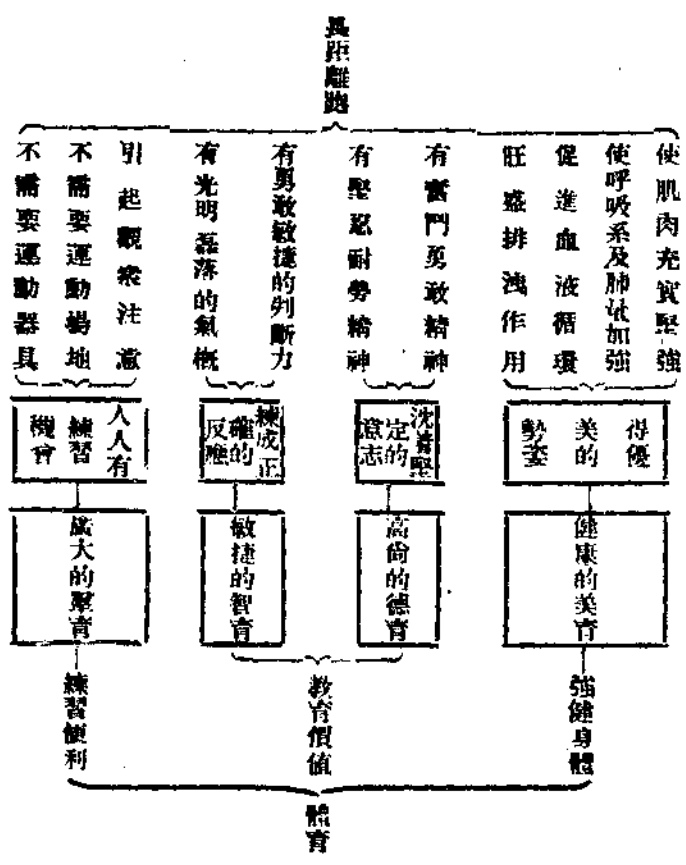 長距離跑
使肌肉充實堅強
使呼吸系及肺量加強
促進血液循環
旺盛排洩作用
有奮鬥勇敢精神
有堅忍耐勞精神
有勇敢敏捷的判斷力
有光明磊落的氣概
引起觀衆注意
不需要運動場地
不需要運動器具
得優
美的
姿勢
沈着堅
定的
意志
練成正
確的
反應
人人有
練習
機會
健康的美育
高尙的德育
敏捷的智育
廣大的羣育
強健身體
教育價値
練習便利
體育